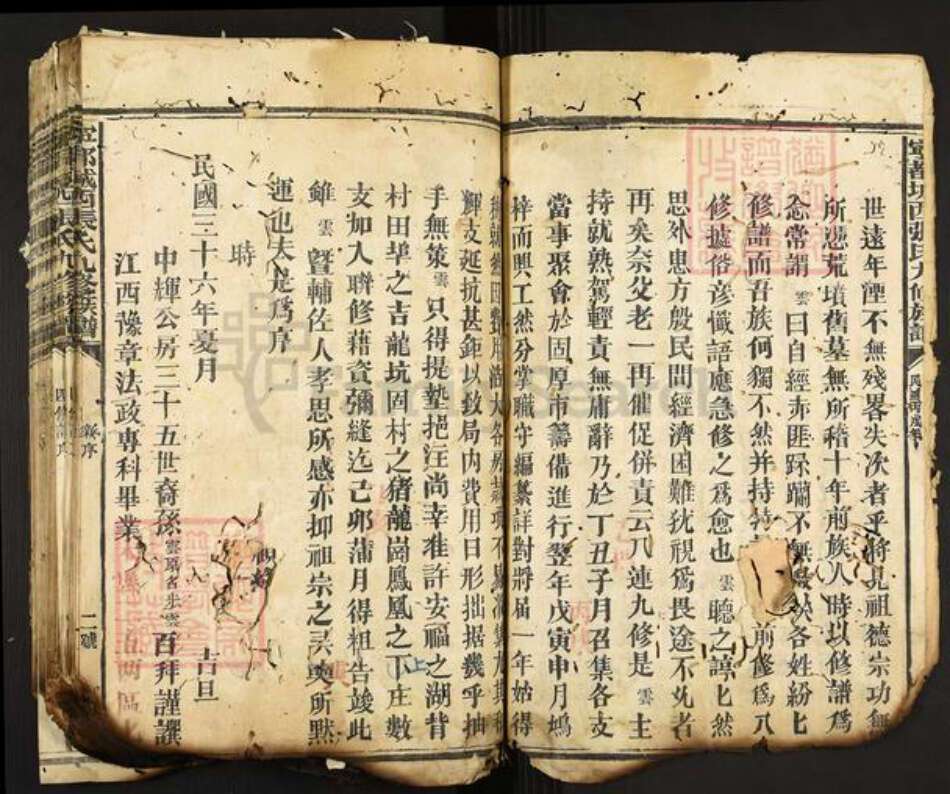 世遠年湮不無殘畧失次者乎將見祖德宗功無
所憑荒墳舊墓無所稽十年前族人時以修譜爲
念常謂雲曰自經赤匪蹂躪不無散缺各姓紛匕
修譜而吾族何獨不然并持 前修爲八
修據俗彥懺語應急修之爲愈也雲聽之諄匕然
思外患方殷民間經濟困難犹視爲畏途不免者
再矣奈父老一再催促併責云八連九修是雲主
持就熟駕輕責無庸辭乃於丁丑子月召集各支
當事聚會於固厚市籌備進行翌年戊寅申月鳩
梓而興工然分掌職守編纂詳對將届一年始得
輝支延抗甚鉅以致局内費用日形拙据幾乎抽
手無策雲只得提墊挹注尚幸准許安福之湖背
村田垏之吉龍坑固村之猪龍崗鳳凰之下庄數
支加入聯修藉資彌縫迄己卯蒲月得粗告竣此
雖雲暨輔佐人孝思所感亦抑祖宗之灵爽所默
運也夫是爲序
時
民國三十六年憂月 吉旦
中輝公房三十五世裔孫雲 百拜謹譔
江西豫章法政專科畢業
寧都城西張氏九修族譜
新序
二號